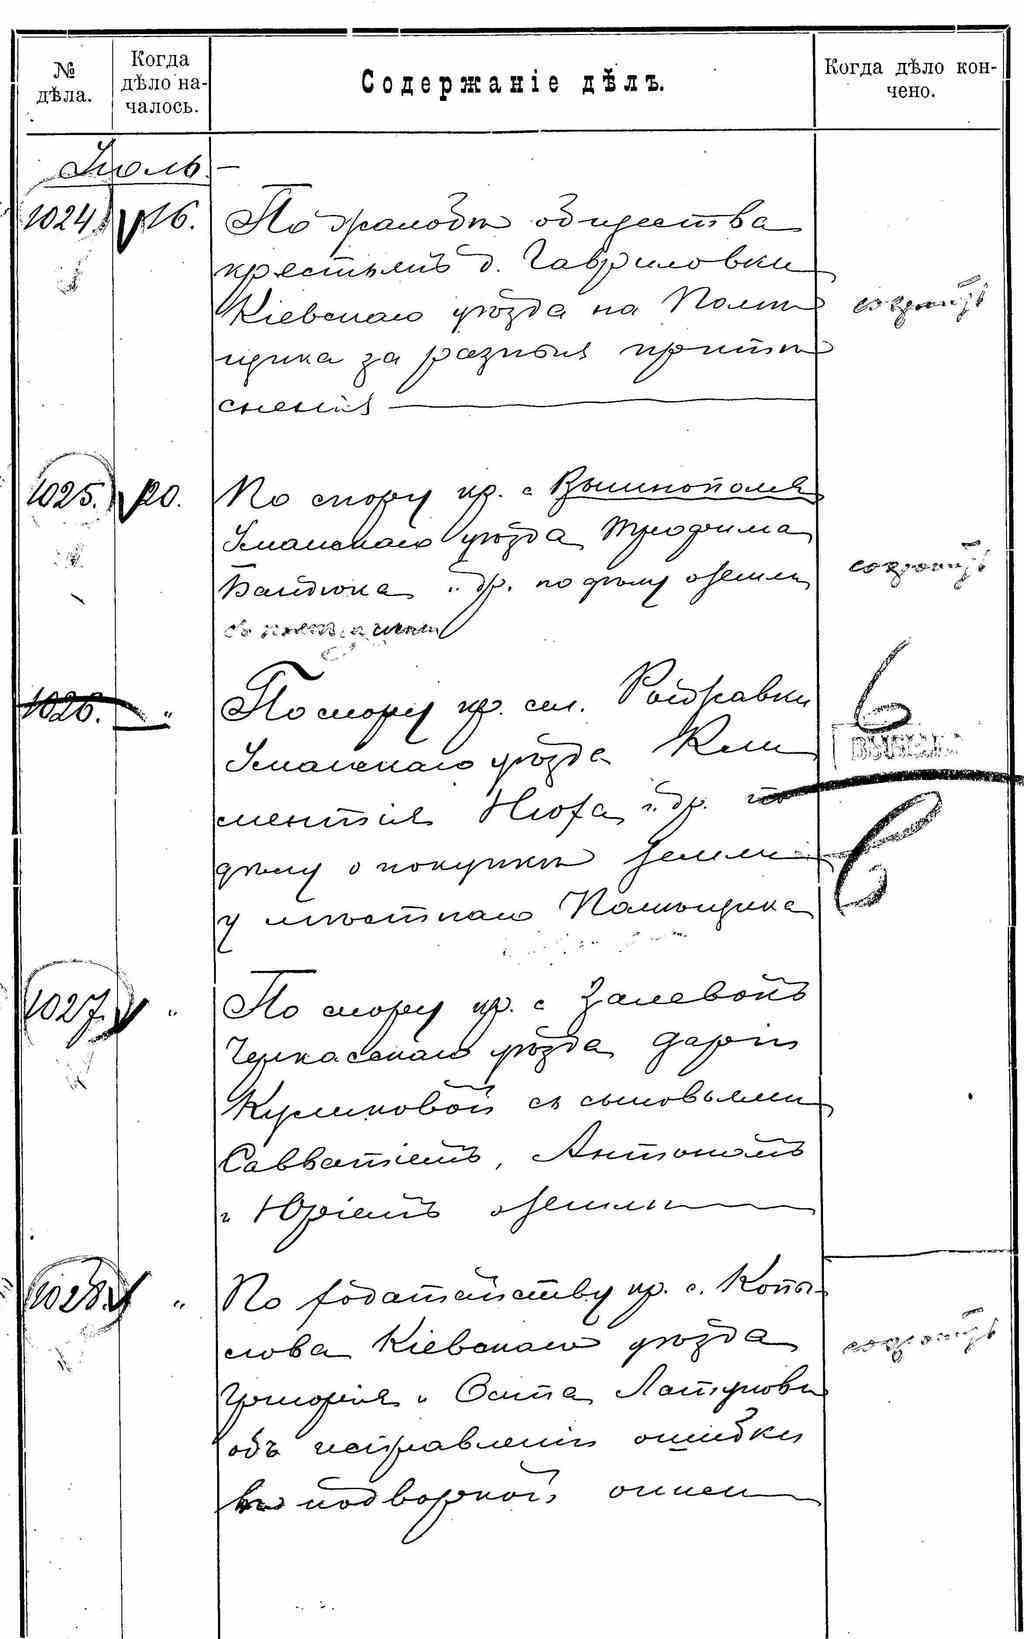 № дѣла.
Когда дѣло на-
чалось.
Содержаніе дѣлъ.
Когда дѣло кон-
чено.
Іюль.
1024. 16. По жалобѣ общества
крестьянъ д. Гавриловки
Кіевскаго уѣзда на Помѣ
щика за разныя притѣ
сненія
1025. 20. По спору кр. с
Уманскаго уѣзда Трофима
Бандюка и др. по дѣлу о земли
1026. " По спору кр. сел. Ройзравки
Уманскаго уѣзда Кли
ментія Нюха и др. по
дѣлу о покупкѣ земли
у мѣстнаго Помѣщика
1027. " По спору кр. с Залевокъ
Черкасскаго уѣзда Даріи
Куликовой съ сыновьями
Савватіемъ, Антономъ
и Юріемъ о земли
1028. " По ходатайству кр. с. Копы-
лова Кіевскаго уѣзда
Григорія и Осипа
объ исправленіи ошибки
въ подворной описи